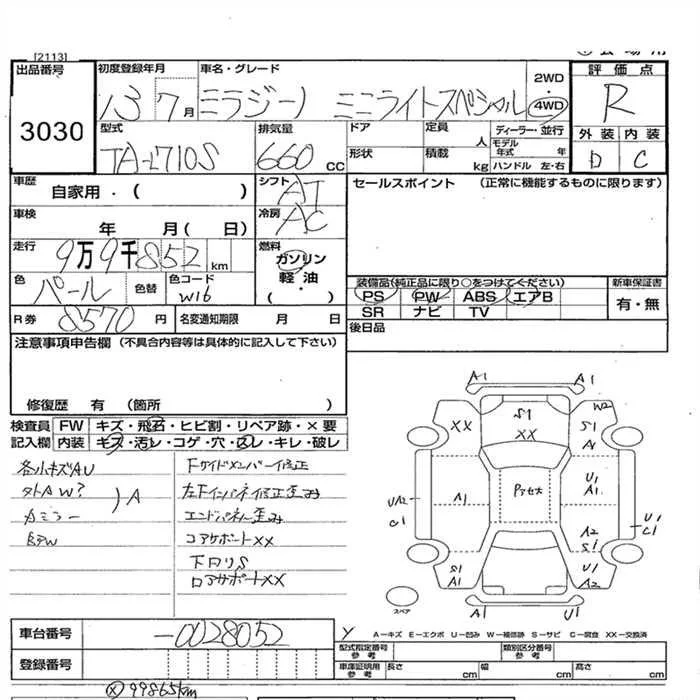 [2113]
出品番号 初度登録年月 車名・グレード 2WD 評価点
3030 13 7月 ミラジーノ ミニライトスペシャル 4WD R
型式 排気量 ドア 定員 人 ディーラー・並行 外装 内装
TA-L710S 660 CC 形状 積載 kg モデル年式 年 ハンドル 左・右 D C
車歴 自家用・( ) シフト AT セールスポイント (正常に機能するものに限ります)
車検 年 月(日) 冷房 AC
走行 9万9千852km 燃料 ガソリン
色 パール 色替 色コード W16 軽油・( )
装備品(純正品に限り○をつけてください) 新車保証書
PS PW ABS エアB 有・無
SR ナビ TV
R券 8570円 名変通知期限 月 日 後日品
注意事項申告欄 (不具合内容等は具体的に記入して下さい)
修復歴 有 (箇所 )
検査員 FW キズ・飛石・ヒビ割・リペア跡・×要
記入欄 内装 キズ・汚レ・コゲ・穴・スレ・キレ・破レ
各小キズAU
A
Fサイドメンバー修正
左Fインパネ修正歪み
エンドパネル歪み
コアサポートXX
下回りS
ロアサポートXX
A1 A1
XX S1 XX W2 S1 A1
UA2 C1 A1 U1 A1 U1 C1
A2 S1
S1 A1 U1 A2
スペア A1 U1
A―キズ E―エクボ U―凹み W―補修跡 S―サビ C―腐食 XX―交換済
車台番号 -0028052
型式指定番号 参考 類別区分番号 参考
登録番号 車庫証明用 参考 長さ cm 幅 cm 高さ cm
99865km